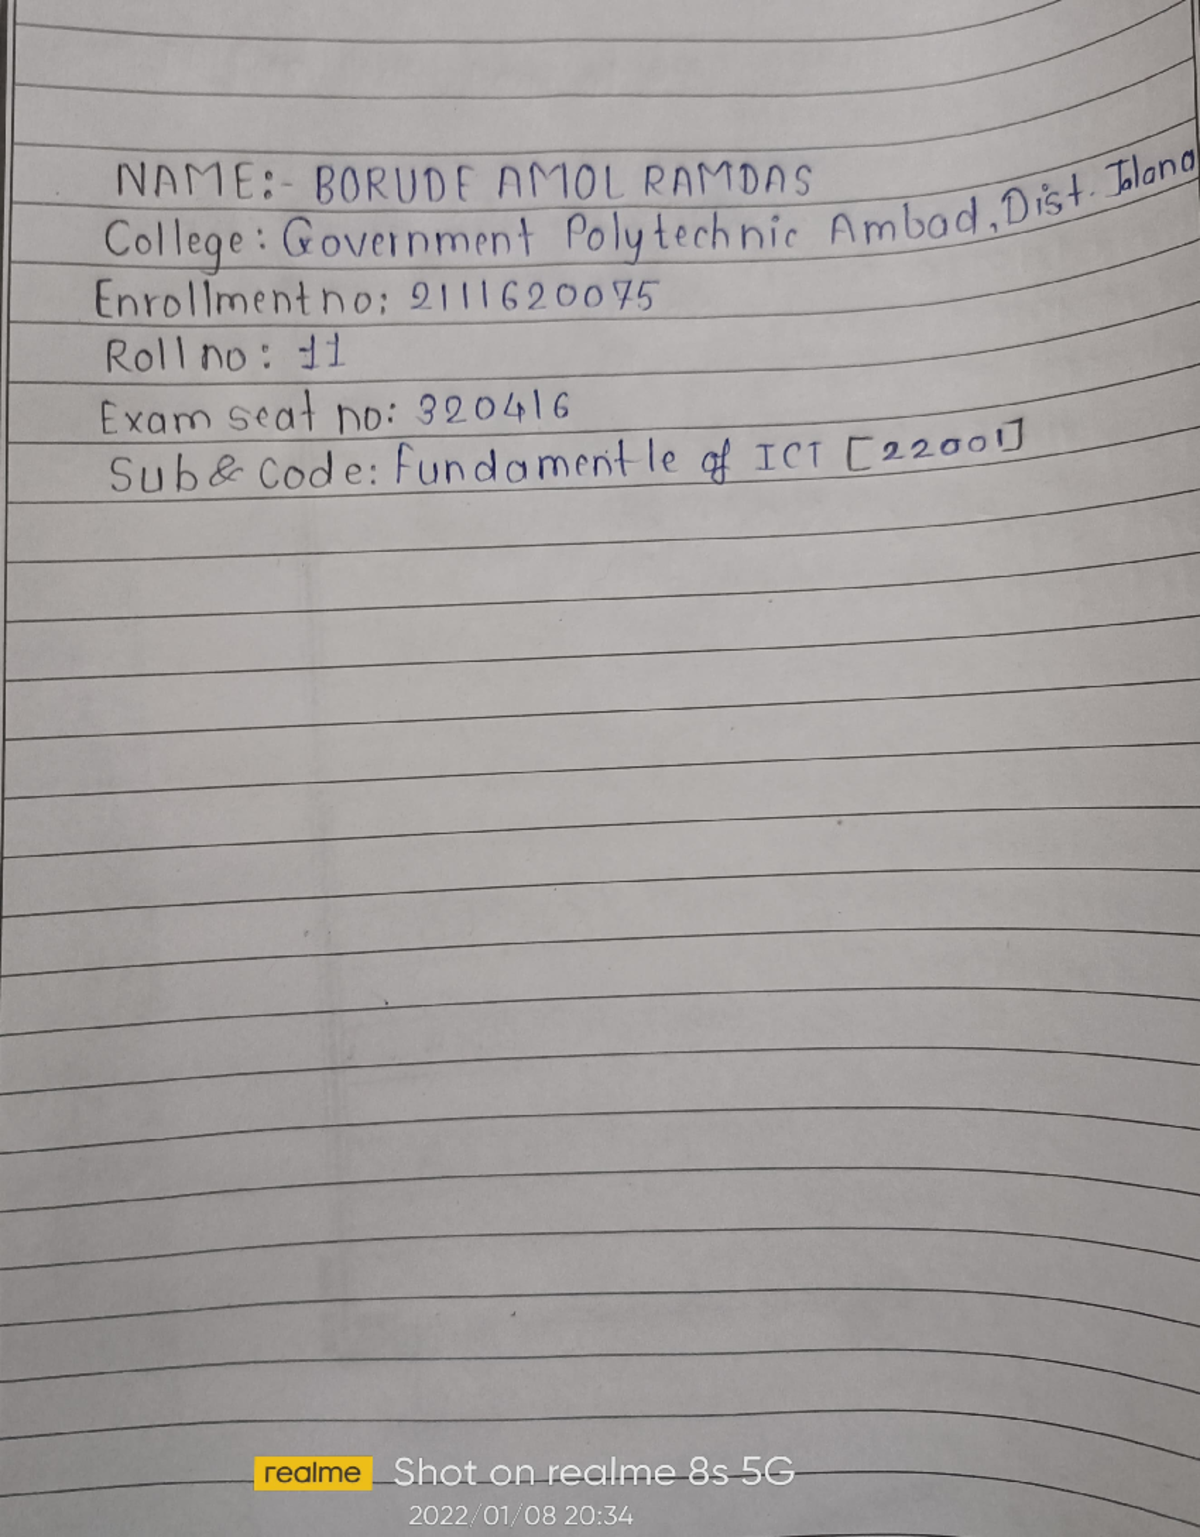 NAME:- BORUDE AMOL RAMDAS
College: Government Polytechnic Ambad, Dist. Jalana
Enrollment no: 2111620075
Roll no: 11
Exam seat no: 320416
Sub & Code: Fundamentle of ICT [22001]
realme Shot on realme 8s 5G
2022/01/08 20:34